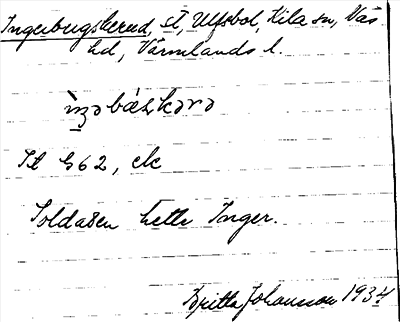 Ingerbugskerud, st, Ulfsbol, Kila sn, Näs
hd, Värmlands l.
St 662, ek
Soldaten hette Inger.
Britta Johansson 1934